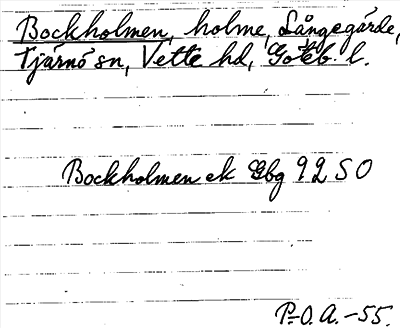 Bockholmen, holme, Långegärde,
Tjärnö sn, Vette hd, Göteb. l.
Bockholmen ek Gbg 92 SO
P-O. A. -55.